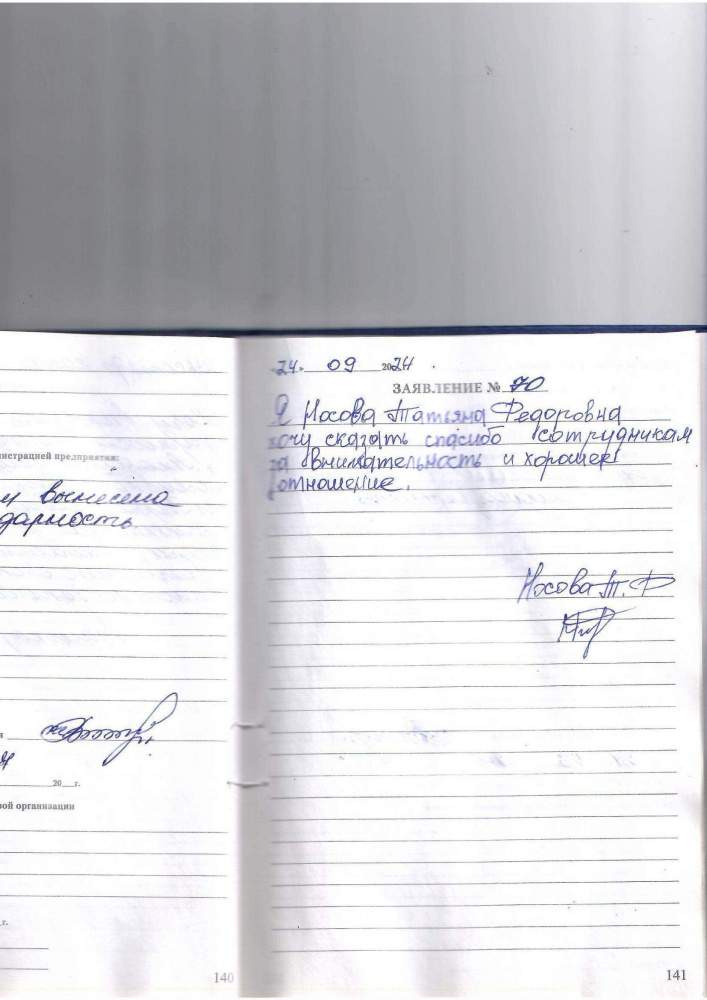 нистрацией предприятия:
и вынесена
дарность
20 г.
рой организации
г.
140
"24" 09 2024
ЗАЯВЛЕНИЕ № 70
Я Носова Татьяна Федоровна
хочу сказать спасибо сотрудникам
за внимательность и хорошее
отношение.
Носова Т. Ф
141